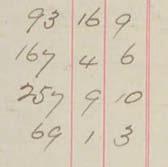 93 16 9
167 4 6
257 9 10
69 1 3